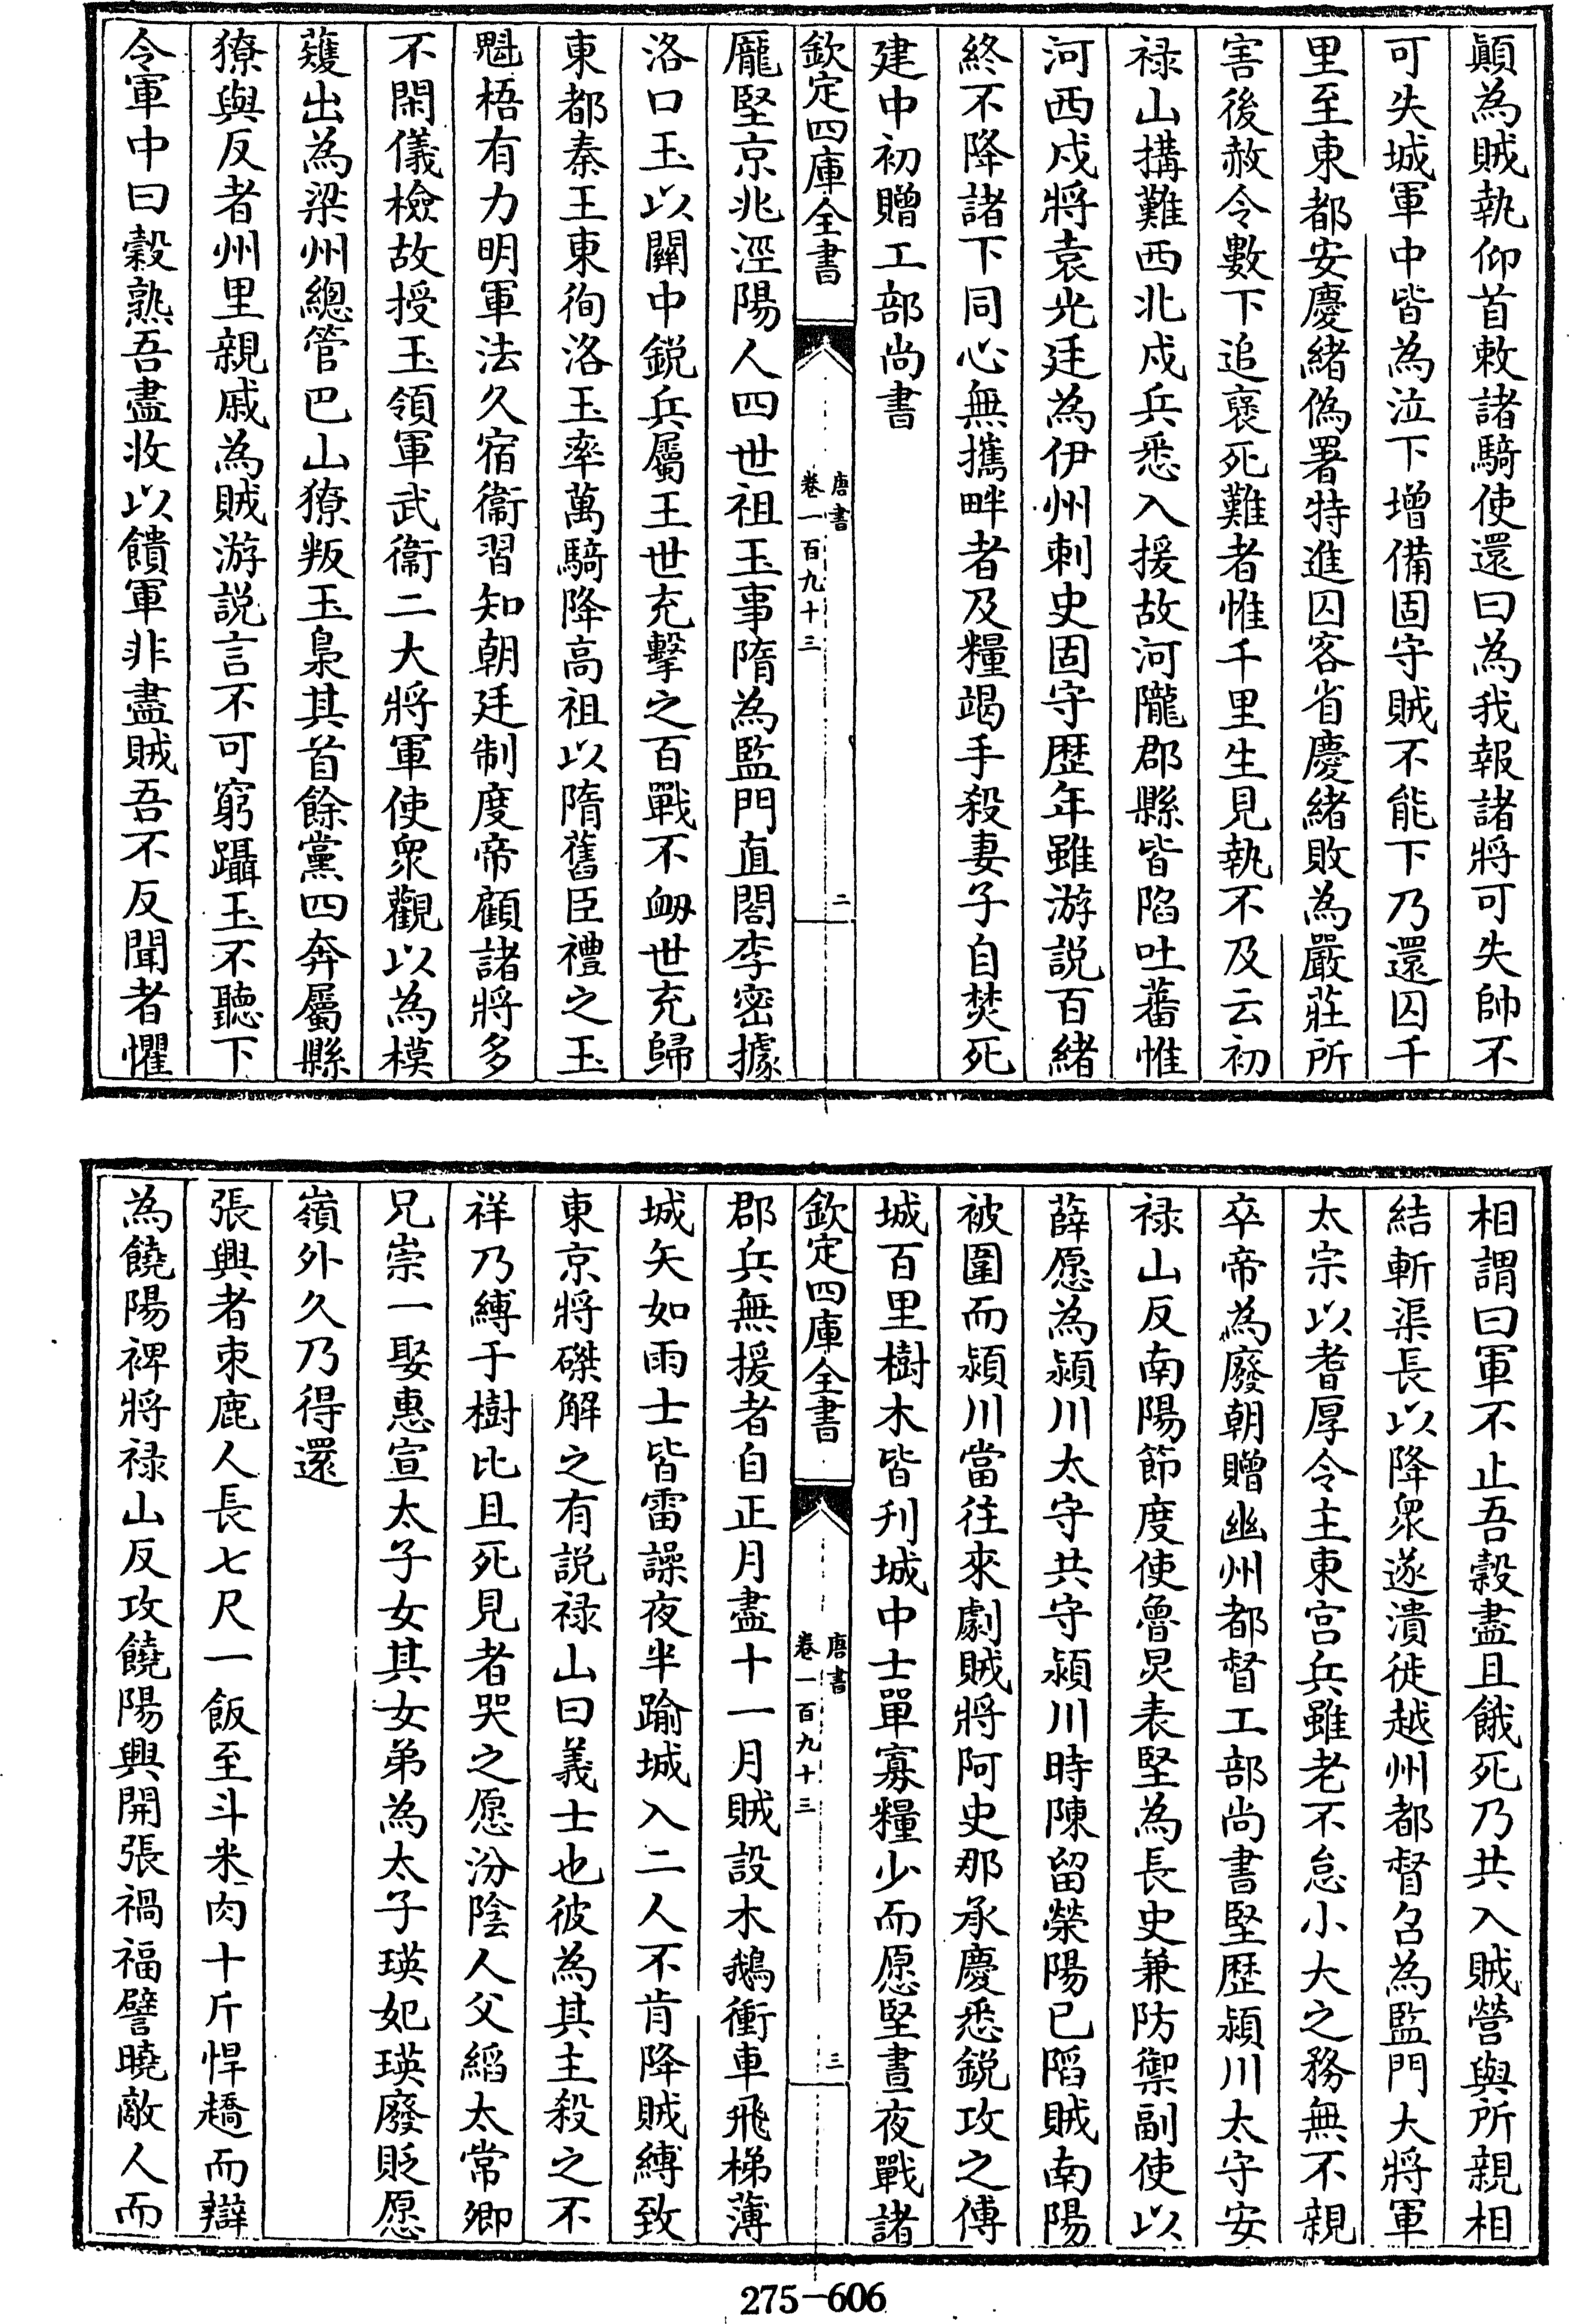 顛為賊執仰首敕諸騎使還曰為我報諸將可失帥不
可失城軍中皆為泣下増備固守賊不能下乃還囚千
里至東都安慶緒偽署特進囚客省慶緒敗為嚴莊所
害後赦令數下追褒死難者惟千里生見執不及云初
禄山搆難西北戍兵悉入援故河隴郡縣皆陷吐蕃惟
河西戍將袁光廷為伊州刺史固守歴年雖游説百緒
終不降諸下同心無攜畔者及糧竭手殺妻子自焚死
建中初贈工部尚書
欽定四庫全書
唐書
卷一百九十三
二
龎堅京兆涇陽人四世祖玉事隋為監門直閤李密據
洛口玉以關中鋭兵屬王世充擊之百戰不衂世充歸
東都秦王東徇洛玉率萬騎降高祖以隋舊臣禮之玉
魁梧有力明軍法久宿衞習知朝廷制度帝顧諸將多
不閑儀檢故授玉領軍武衞二大將軍使衆觀以為模
蒦出為梁州總管巴山獠叛玉梟其首餘黨四奔屬縣
獠與反者州里親戚為賊游説言不可窮躡玉不聽下
令軍中曰穀熟吾盡收以饋軍非盡賊吾不反聞者懼
相謂曰軍不止吾穀盡且餓死乃共入賊營與所親相
結斬渠長以降衆遂潰徙越州都督召為監門大將軍
太宗以耆厚令主東宫兵雖老不怠小大之務無不親
卒帝為廢朝贈幽州都督工部尚書堅歴潁川太守安
禄山反南陽節度使魯炅表堅為長史兼防禦副使以
薛愿為潁川太守共守潁川時陳留滎陽已䧟賊南陽
被圍而潁川當往來劇賊將阿史那承慶悉鋭攻之傅
城百里樹木皆刋城中士單寡糧少而愿堅晝夜戰諸
欽定四庫全書
唐書
卷一百九十三
三
郡兵無援者自正月盡十一月賊設木鵝衝車飛梯薄
城矢如雨士皆雷譟夜半踰城入二人不肯降賊縛致
東京將磔解之有説禄山曰義士也彼為其主殺之不
祥乃縛于樹比且死見者哭之愿汾陰人父縚太常卿
兄崇一娶惠宣太子女其女弟為太子瑛妃瑛廢貶愿
嶺外久乃得還
張興者束鹿人長七尺一飯至斗米肉十斤悍趫而辯
為饒陽裨將禄山反攻饒陽興開張禍福譬曉敵人而
275-606